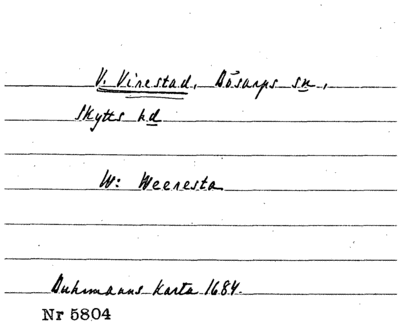 V. Virestad, Bösarps sn,
Skytts hd
W: Weeresta
Buhrmanns Karta 1684.
Nr 5804